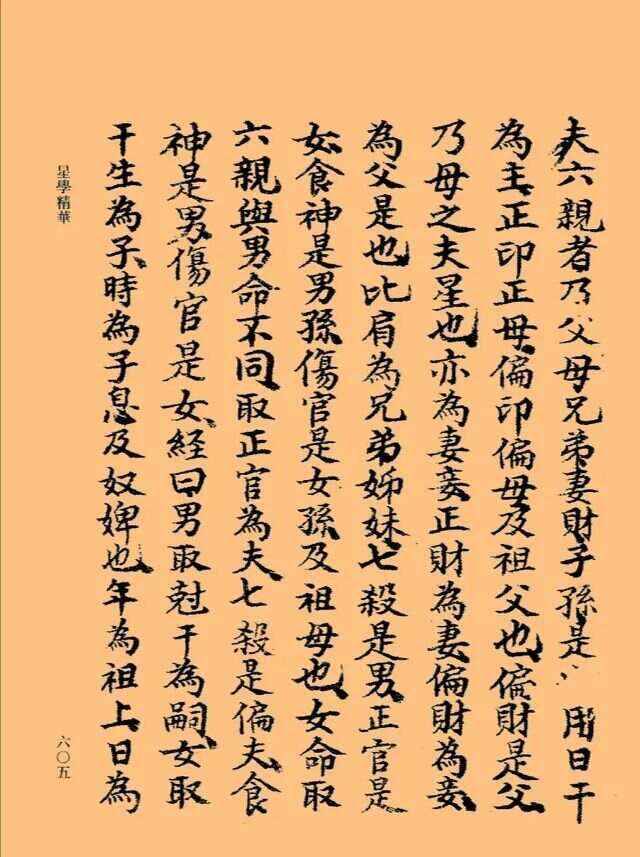 夫六親者乃父母兄弟妻財子孫是 用日干
為主正印正母偏印偏母及祖父也偏財是父
乃母之夫星也亦為妻妾正財為妻偏財為妾
為父是也比肩為兄弟姊妹七殺是男正官是
女食神是男孫傷官是女孫及祖母也女命取
六親與男命不同取正官為夫七殺是偏夫食
神是男傷官是女経曰男取尅干為嗣女取
干生為子時為子息及奴婢也年為祖上日為
星學精華
六〇五